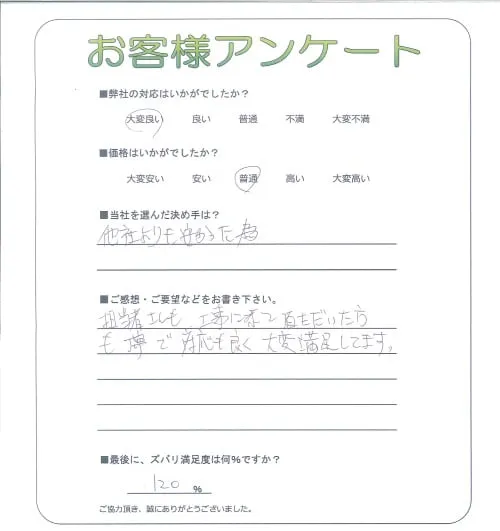 お客様アンケート
■弊社の対応はいかがでしたか？
大変良い 良い 普通 不満 大変不満
■価格はいかがでしたか？
大変安い 安い 普通 高い 大変高い
■当社を選んだ決め手は？
他社よりも安かった為
■ご感想・ご要望などをお書き下さい。
担当者さんも、工事に来て頂ただいた方
も 丁寧で 対応も良く 大変満足してます。
■最後に、ズバリ満足度は何%ですか？
120 %
ご協力頂き、誠にありがとうございました。